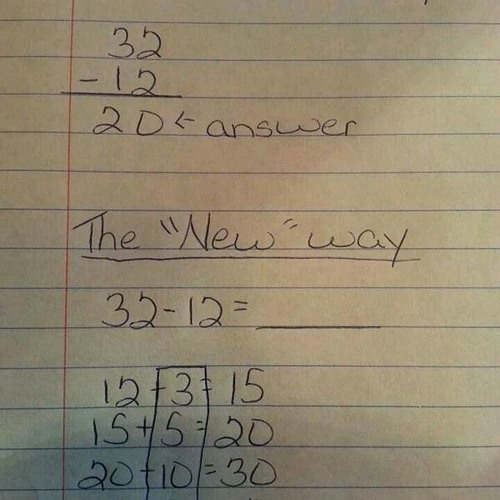 32
- 12
20 ← answer
The "New" way
32 - 12 = ______
12 + 3 = 15
15 + 5 = 20
20 + 10 = 30